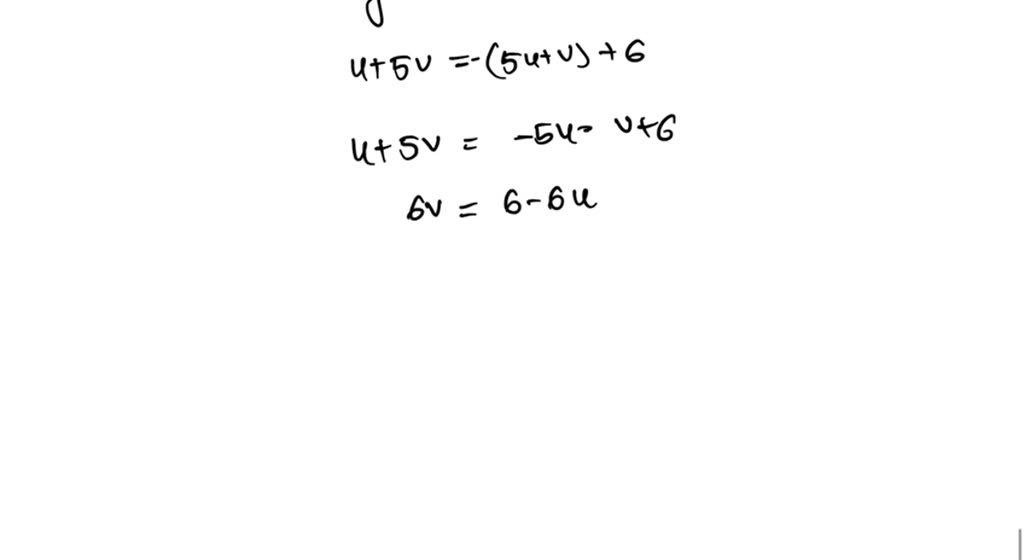 u+5v =-(5u+v)+6
u+5v = -5u- v+6
6v = 6-6u